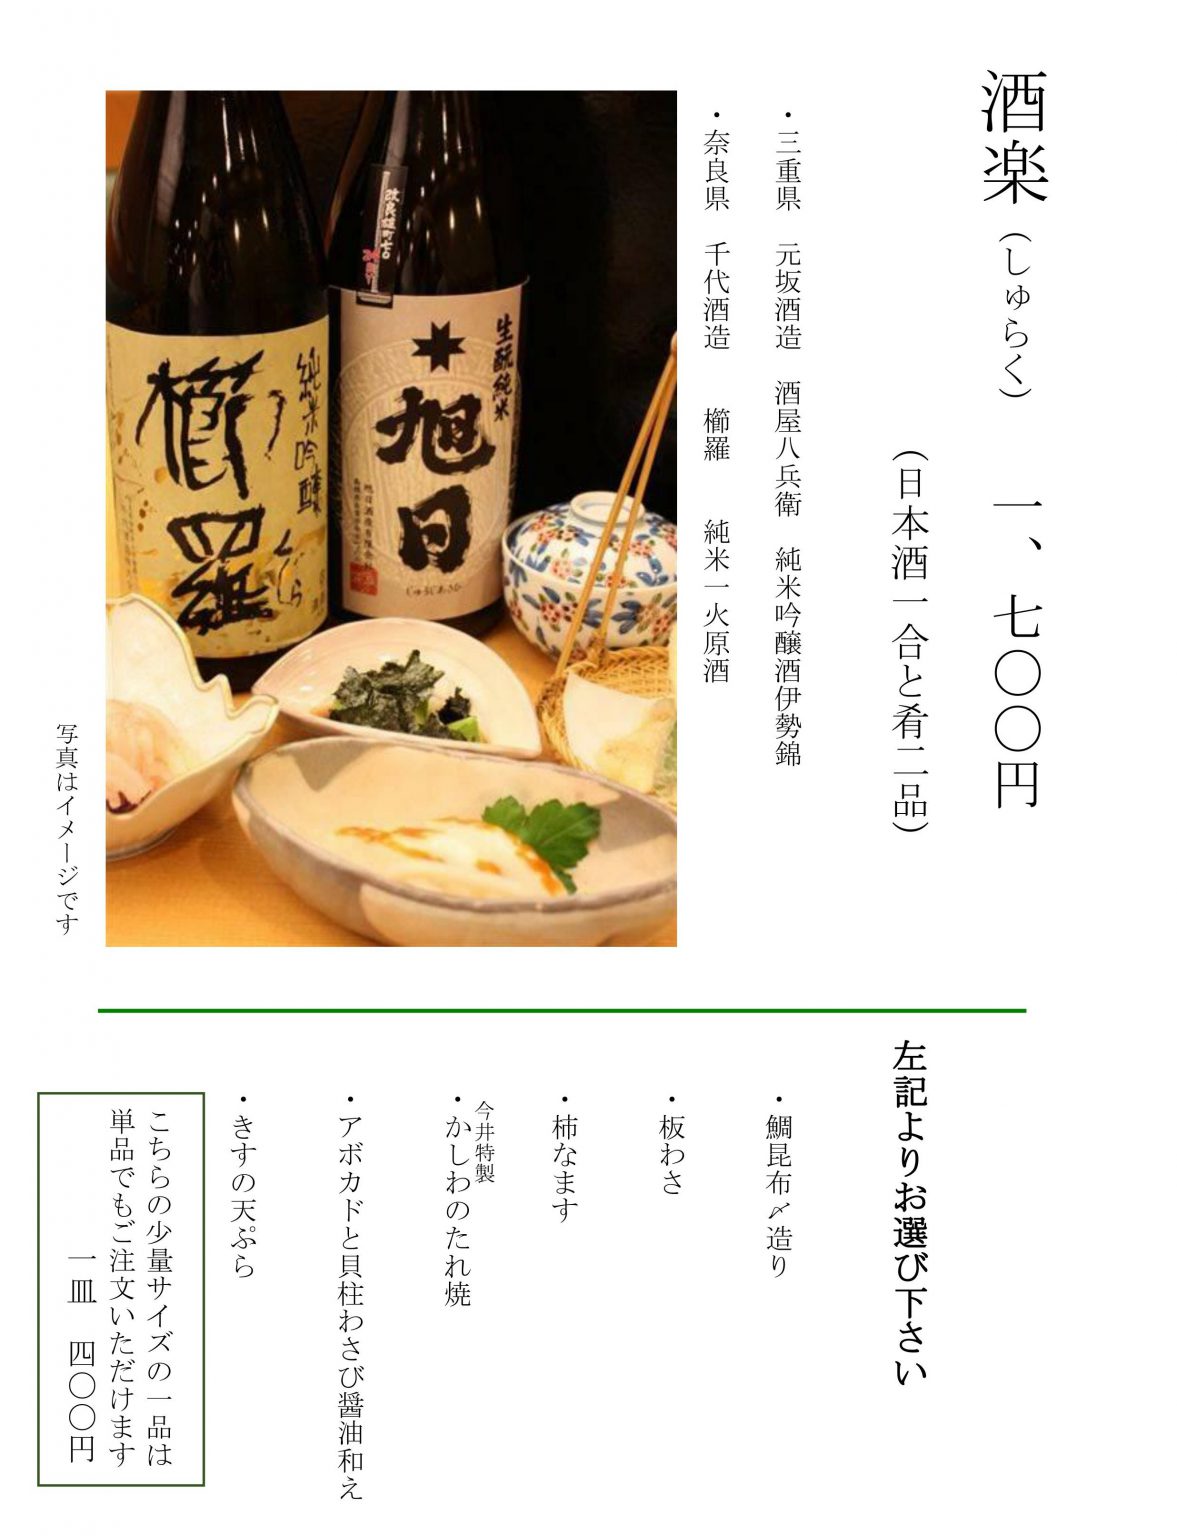 酒楽（しゅらく）　一、七〇〇円
（日本酒一合と肴二品）
・三重県　元坂酒造　酒屋八兵衛　純米吟醸酒伊勢錦
・奈良県　千代酒造　櫛羅　純米一火原酒
生酛純米
旭日
じゅうじあさひ
改良雄町七〇
純米吟醸
櫛羅
くじら
写真はイメージです
左記よりお選び下さい
・鯛昆布〆造り
・板わさ
・柿なます
今井特製
・かしわのたれ焼
・アボカドと貝柱わさび醤油和え
・きすの天ぷら
こちらの少量サイズの一品は
単品でもご注文いただけます
一皿　四〇〇円